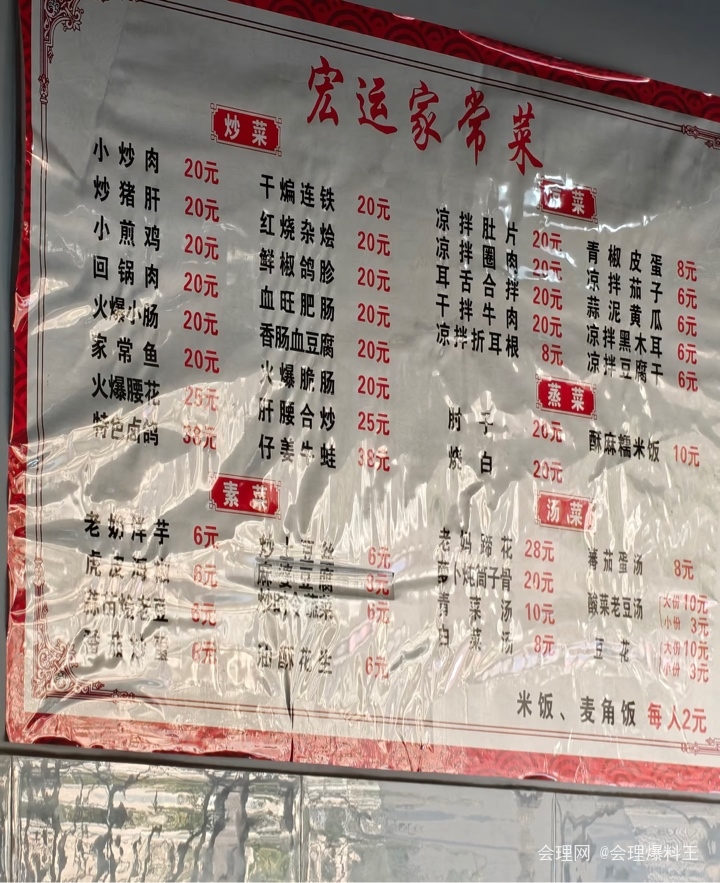 宏运家常菜
炒菜
小炒肉 20元
炒猪肝 20元
小煎鸡 20元
回锅肉 20元
火爆小肠 20元
家常鱼 20元
火爆腰花 25元
特色卤鸽 38元
干煸连铁 20元
红烧杂烩 20元
鲜椒鸽胗 20元
血旺肥肠 20元
香肠血豆腐 20元
火爆脆肠 20元
肝腰合炒 25元
仔姜牛蛙 38元
凉菜
凉拌肚片 20元
凉拌圈肉 20元
耳舌合拌 20元
干拌牛肉 20元
凉拌折耳根 8元
青椒皮蛋 8元
凉拌茄子 6元
蒜泥黄瓜 6元
凉拌黑木耳 6元
凉拌豆腐干 6元
蒸菜
肘子 20元
烧白 20元
酥麻糯米饭 10元
素菜
老奶洋芋 6元
虎皮海椒 6元
蒜苗烧老豆 6元
番茄炒蛋 6元
炒土豆丝 6元
麻婆豆腐
炒时令蔬菜 6元
油酥花生 6元
汤菜
老妈蹄花 28元
萝卜炖筒子骨 20元
青菜汤 10元
白菜汤 8元
番茄蛋汤 8元
酸菜老豆汤 大份10元
小份 3元
豆花 大份10元
小份 3元
米饭、麦角饭 每人2元
会理网 @会理爆料王